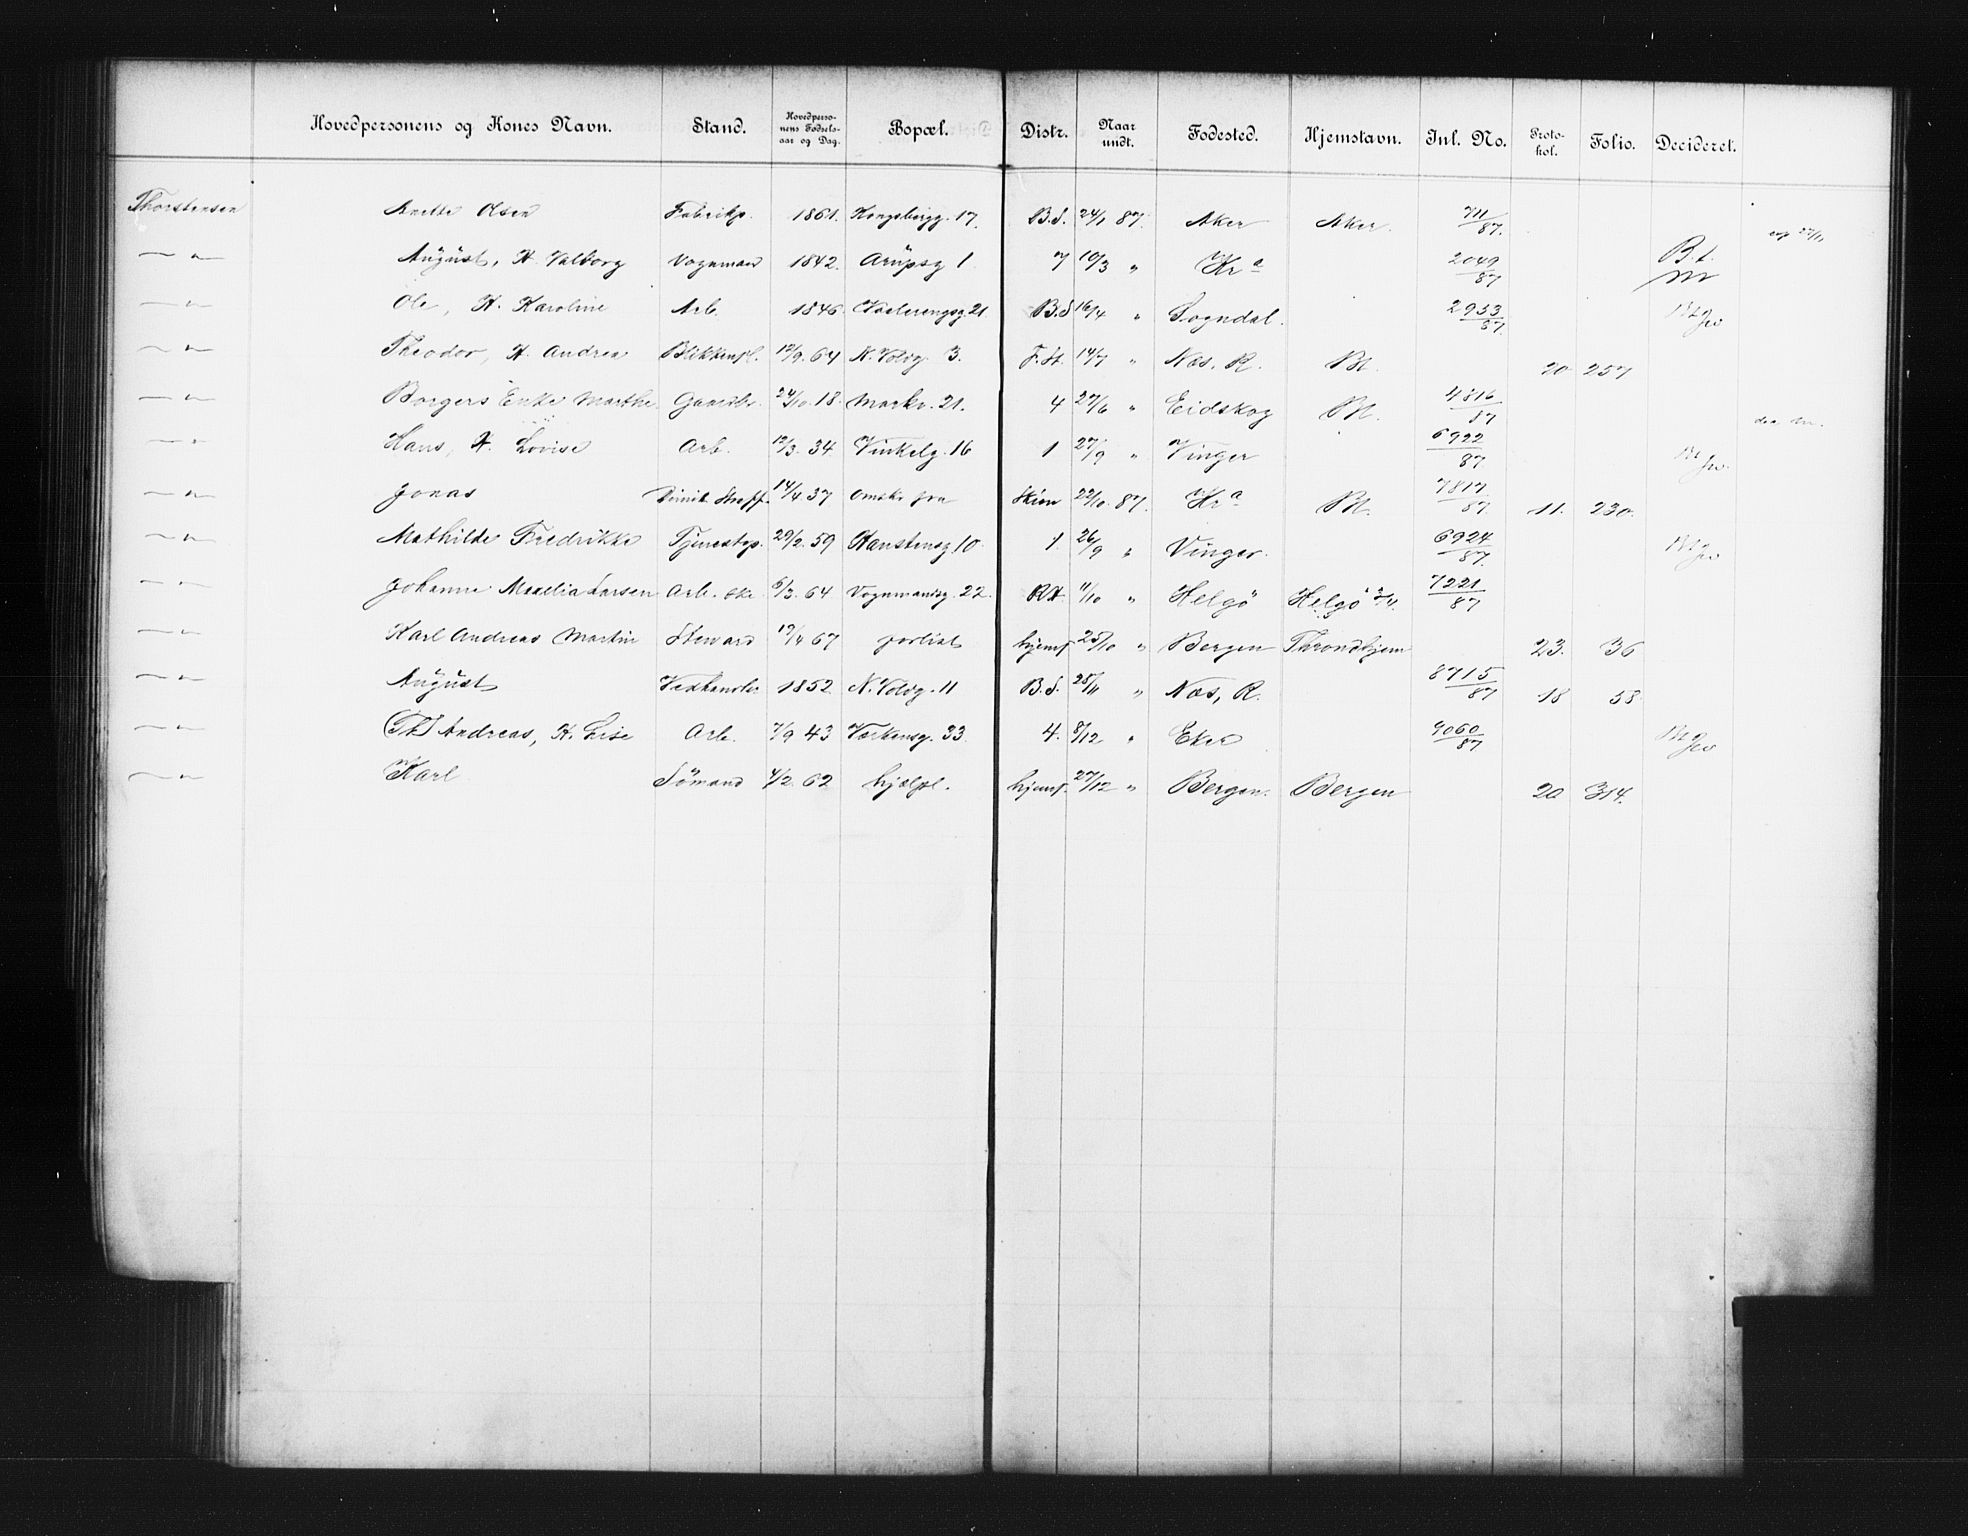 Hovedpersonens og Kones Navn. Stand. Hovedpersonens Fødselsaar og Dag. Bopæl. Distr. Naar undt. Fødested. Hjemstavn. Inl. No. Protokol. Folio. Decideret.
Thorstensen Anette Olsen Fabrikp. 1861. Kongsbergg. 17. B.S. 24/1 87. Aker Aker. 711/87.
— " — August, H. Valborg Vognmand 1842. Arupsg 1. 7 10/3 " Kra 2049/87 B.t.
— " — Ole, H. Karoline Arb. 1846. Vaalerengsg 21. B.S 16/4 " Sogndal. 2953/87.
— " — Theodor, H. Andrea Blikkensl. 12/9. 64 N. Volvg. 3. F. St. 14/7 " Næs. R. Bt. 20 257
— " — Borgers Enke Marthe 24/10. 18. Markv. 21. 4 27/6 " Eidskog Bt. 4816/87
— " — Hans, H. Lovise Arb. 12/3. 34 Vinkelg. 16 1 27/9 " Vinger 6922/87
— " — Jonas 14/4. 37 Skien 22/10. 87. Kra Bt. 7817/87. 11. 230.
— " — Mathilde Fredrikke Tjenestep. 29/2. 59 Hanstensg 10. 1. 26/9 " Vinger. 6924/87.
— " — Johanne Maxelia Larsen Arb. ske 6/3. 64 Vognmandsg. 22. Rst. 11/10 " Helgö Helgö 7221/87
— " — Karl Andreas Martin Steward 19/4 67 forlist hjemf 25/10 " Bergen Throndhjem 23. 36
— " — August Vedhandler 1852 N. Volvg. 11 B.S. 25/11 " Næs, R. 8715/87 18 58
— " — (Th) Andreas, H. Lise Arb. 7/9 43 Verkensg. 33 4. 8/12 " Eker 9060/87
— " — Karl Sömand 4/2. 62 hjælpl. hjemf. 27/12 " Bergen. Bergen 20 314.